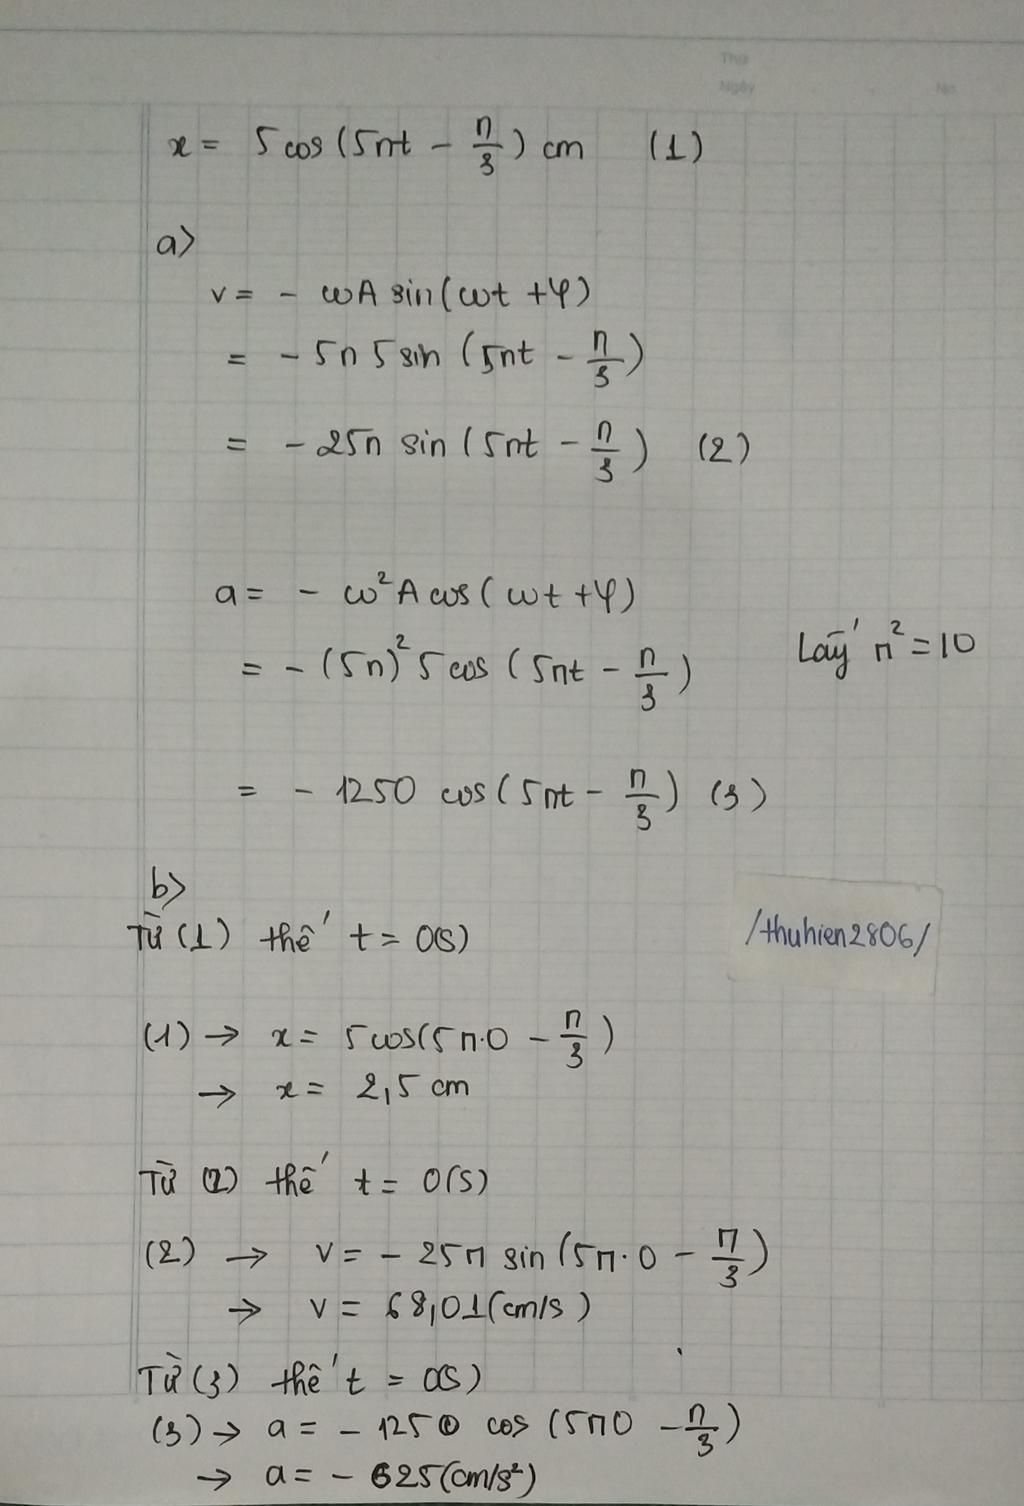 Thứ
Ngày No.
x = 5 cos (5πt - π/3) cm (1)
a>
v = - ωA sin(ωt + φ)
= - 5π 5 sin (5πt - π/3)
= - 25π sin (5πt - π/3) (2)
a = - ω²A cos (ωt + φ)
= - (5π)² 5 cos (5πt - π/3) Lấy π² = 10
= - 1250 cos (5πt - π/3) (3)
b>
Từ (1) thế t = 0(s)
/thuhien2806/
(1) → x = 5 cos(5π.0 - π/3)
→ x = 2,5 cm
Từ (2) thế t = 0(s)
(2) → v = - 25π sin (5π.0 - π/3)
→ v = 68,01(cm/s)
Từ (3) thế t = 0(s)
(3) → a = - 1250 cos (5π0 - π/3)
→ a = - 625(cm/s²)